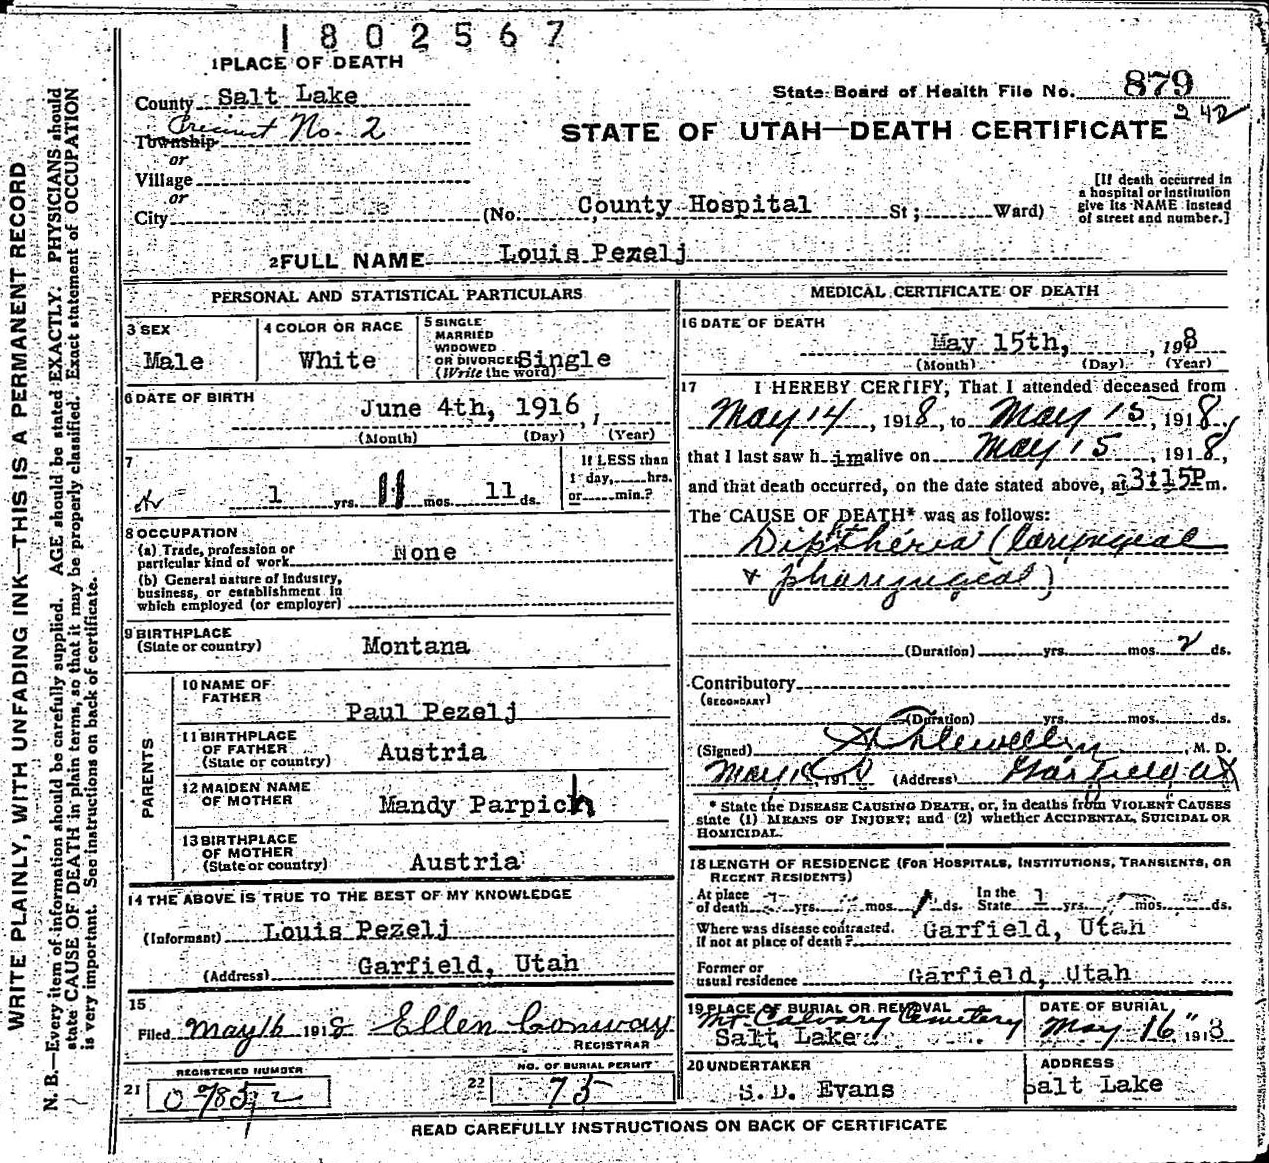 1802567
1 PLACE OF DEATH
State Board of Health File No. 879
242
County Salt Lake
Precinct No. 2
Township
or
STATE OF UTAH—DEATH CERTIFICATE
Village
or
City (No. County Hospital St; Ward)
[If death occurred in
a hospital or institution
give its NAME instead
of street and number.]
2 FULL NAME Louis Pezelj
PERSONAL AND STATISTICAL PARTICULARS
3 SEX
Male
4 COLOR OR RACE
White
5 SINGLE
MARRIED
WIDOWED
OR DIVORCED Single
(Write the word)
6 DATE OF BIRTH
June 4th, 1916, 1
(Month) (Day) (Year)
7
1 yrs. 11 mos. 11 ds.
If LESS than
1 day, hrs.
or min.?
8 OCCUPATION
(a) Trade, profession or
particular kind of work None
(b) General nature of Industry,
business, or establishment in
which employed (or employer)
9 BIRTHPLACE
(State or country) Montana
PARENTS
10 NAME OF
FATHER
Paul Pezelj
11 BIRTHPLACE
OF FATHER
(State or country) Austria
12 MAIDEN NAME
OF MOTHER Mandy Parpich
13 BIRTHPLACE
OF MOTHER
(State or country) Austria
14 THE ABOVE IS TRUE TO THE BEST OF MY KNOWLEDGE
(Informant) Louis Pezelj
(Address) Garfield, Utah
15
Filed May 16 1918 Ellen Conway
REGISTRAR
REGISTERED NUMBER
21
NO. OF BURIAL PERMIT
22 75
MEDICAL CERTIFICATE OF DEATH
16 DATE OF DEATH
May 15th, , 198
(Month) (Day) (Year)
17 I HEREBY CERTIFY, That I attended deceased from
May 14, 1918, to May 15, 1918,
that I last saw h im alive on May 15, 1918,
and that death occurred, on the date stated above, at 3:15P m.
The CAUSE OF DEATH* was as follows:
Diphtheria (laryngeal
& pharyngeal)
(Duration) yrs. mos. 2 ds.
Contributory
(SECONDARY)
(Duration) yrs. mos. ds.
(Signed) Llewellyn, M. D.
May 191 (Address) Garfield Ut
* State the DISEASE CAUSING DEATH, or, in deaths from VIOLENT CAUSES
state (1) MEANS OF INJURY; and (2) whether ACCIDENTAL, SUICIDAL OR
HOMICIDAL.
18 LENGTH OF RESIDENCE (FOR HOSPITALS, INSTITUTIONS, TRANSIENTS, OR
RECENT RESIDENTS)
At place
of death yrs. mos. 1 ds.
In the
State 1 yrs. mos. ds.
Where was disease contracted.
If not at place of death? Garfield, Utah
Former or
usual residence Garfield, Utah
19 PLACE OF BURIAL OR REMOVAL
Mt Calvary Cemetery
Salt Lake
DATE OF BURIAL
May 16" 1918
20 UNDERTAKER
S. D. Evans
ADDRESS
Salt Lake
READ CAREFULLY INSTRUCTIONS ON BACK OF CERTIFICATE
WRITE PLAINLY, WITH UNFADING INK—THIS IS A PERMANENT RECORD
N. B.—Every item of information should be carefully supplied. AGE should be stated EXACTLY: PHYSICIANS should
state CAUSE OF DEATH in plain terms, so that it may be properly classified. Exact statement of OCCUPATION
is very important. See instructions on back of certificate.